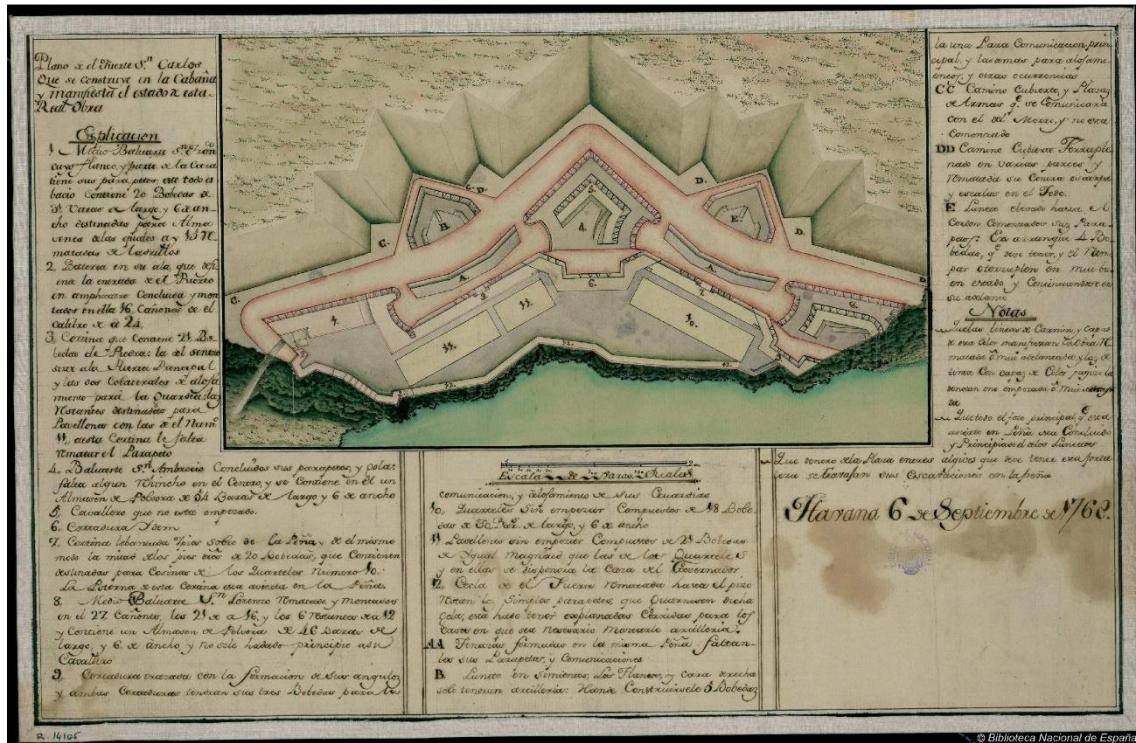 Plano de el Fuerte S.n Carlos
Que se construye en la Cabaña
y manifiesta el estado de esta
Real Obra
Explicacion
1. Medio Baluarte S.n
cuyo flanco, y parte de la Cara
tiene sus parapetos, este todo es
bacio Contiene 20 Bobedas de
Varas de largo, y 6 de an-
cho destinadas para Alma-
cenes de las quales ay 15 Re-
matadas de ladrillos
2. Bateria en su ala que
la entrada de el Puerto
en amphiteatro Concluida y mon-
tados en ella 16 Cañones de el
Calibre de a 24.
3. Cortina que Contiene 21 Bo-
bedas de Piedra: la del
la Puerta Principal
y las dos Colaterales de aloja-
miento para la Guardia: las
Restantes destinadas para
Pavellones con las de el Num.o
11. a esta Cortina le falta
Rematar el Parapeto
4. Baluarte S.n Ambrocio Concluidos sus parapetos, y
falta algun Rhincho en el Centro, y se Contiene en el un
Almasen de Polvora de 34 Baras de largo y 6 de ancho
5. Cavallero que no esta empezado.
6. Cortadura Ydem
7. Cortina sobre de la Peña, y de el mismo
modo la mitad de los pies de 20 Bobedas, que Contienen
destinadas para Cosinas de los Quarteles Numero 10.
La Poterna de esta Cortina esta avierta en la Peña.
8. Medio Baluarte S.n Lorenzo Rematado y montados
en el 27 Cañones, los 21 de a 16, y los 6 Restantes de a 12
y Contiene un Almasen de Polvora de 46 Baras de
largo, y 6 de ancho, y no se le ha dado principio a su
Cavallero
9. Cortadura trazada con la formacion de sus angulos
y ambas Cortaduras tendran sus tres Bobedas para la
Escala de Varas Reales
comunicacion, y alojamiento de sus Guardias
10. Quarteles Sin empezar Compuestos de 18 Bobe-
das de de largo, y 6 de ancho
11. Pavellones sin empezar Compuestos de 21 Bobedas
de Ygual Magnitud que las de los Quarteles
y en ellas se dispondra la Casa del Governador
12. Gola de el Fuerte Rematada hasta el piso
Restan los Simples parapetos, que Guarnecen dicha
Gola; esta hade tener explanadas Corridas para los
Casos en que sea Necesario Montarle artilleria.
AA Tenazas formadas en la misma Peña faltan-
les sus Parapetos, y Comunicaciones
B Luneta en Simientos, Los Flancos, y cara derecha
solo tendran artilleria: Hande Construirsele 5 Bobedas
la una Para Comunicacion prin-
cipal, y las demas para alojami-
entos, y otras ocurrencias
CC Camino Cubierto, y Plazas
de Armas q.e se Comunicara
con el del Morro, y no esta
Comensado
DD Camino Cubierto Terraple-
nado en varias partes y
Rematada su Contra escarpa
y escalas en el Foso.
E Luneta elevada hasta el
Cordon Comenzados sus Para-
petos: En arranque 4 Bo-
bedas, q.e deve tener, y el Ram-
par en muy bu-
en estado y Continuandose en
su adelanto
Notas
Que las lineas de Carmin, y capas
de este Color manifiestan la obra Re-
matada ô mui adelantada y las de
tinta Con capas de Color pajizo la
que no esta empezada ô mui
Que todo el foso principal q.e esta
avierto en Peña esta Concluido
y Principiados los de las Lunetas
Que dentro de la Plaza tres algives que deve tener esta forta-
leza se trabajan sus Escabaciones con la peña
Havana 6 de Septiembre de 1768.
R. 14105
© Biblioteca Nacional de España